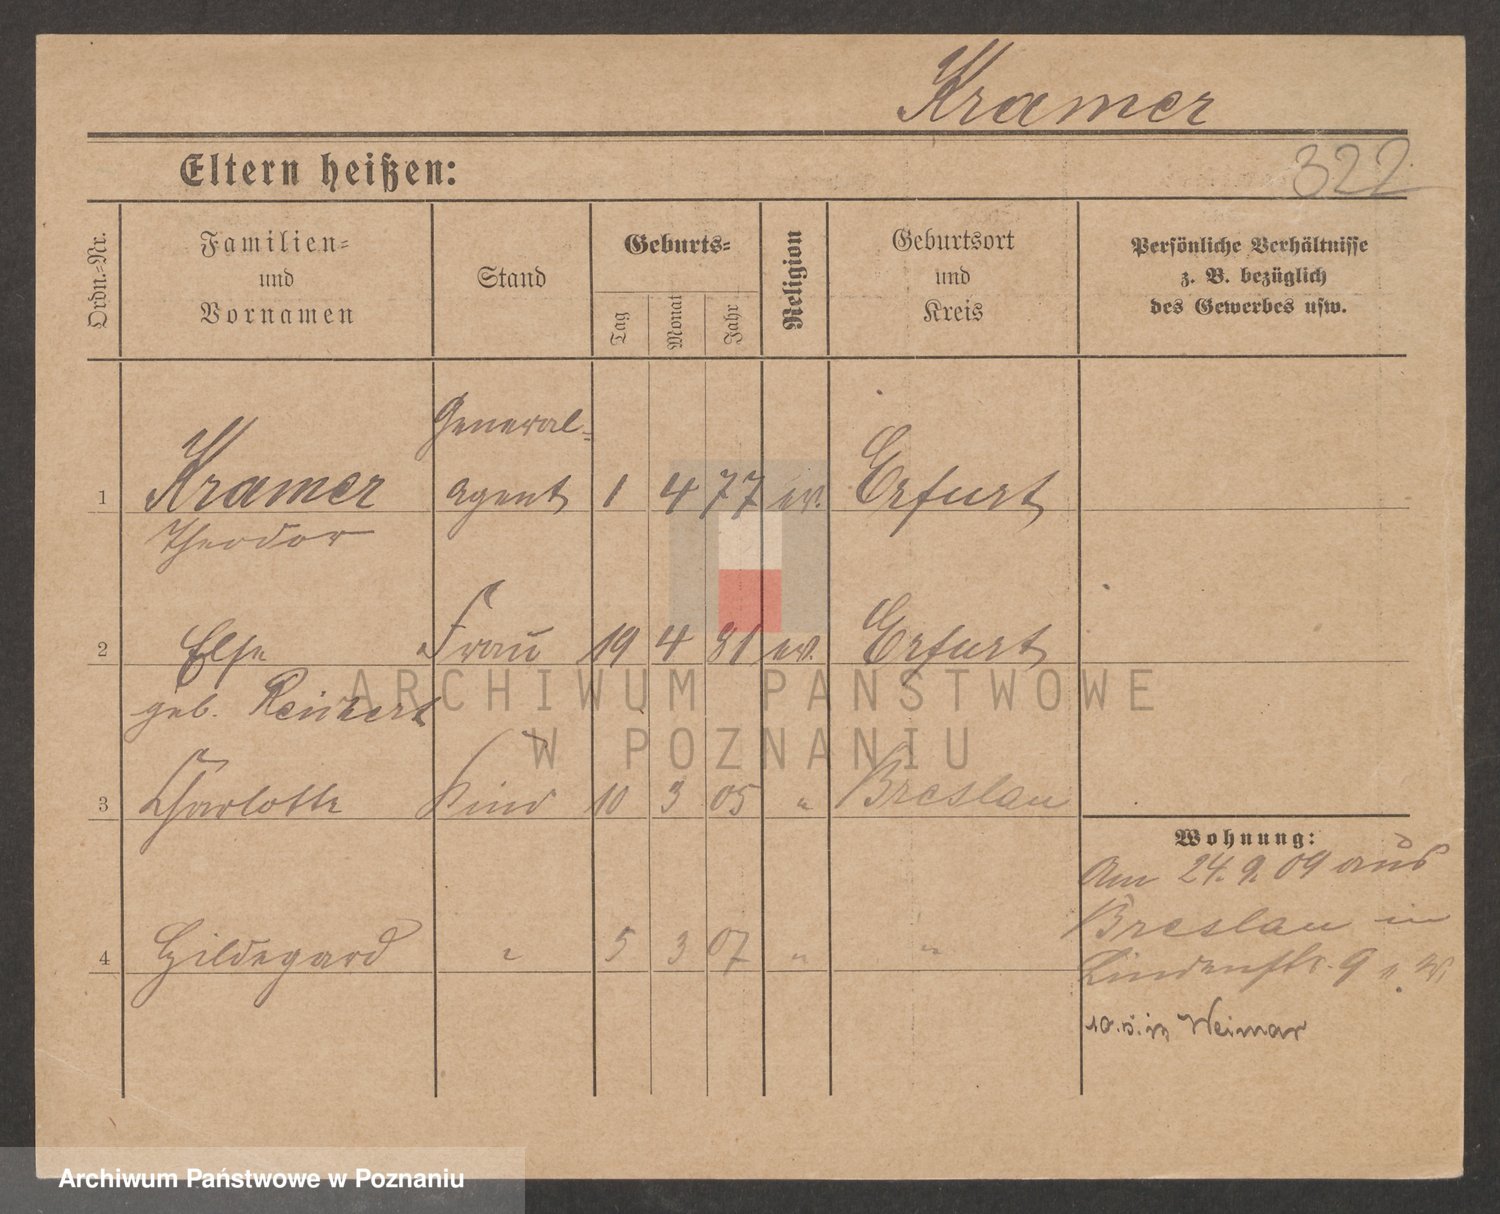 Kramer
322
Eltern heißen:
Ordn.=Nr.
Familien=
und
Vornamen
Stand
Geburts=
Tag
Monat
Jahr
Religion
Geburtsort
und
Kreis
Persönliche Verhältnisse
z. B. bezüglich
des Gewerbes usw.
General=
1 Kramer agent 1 4 77 ev. Erfurt
Theodor
2 Else Frau 19 4 81 ev. Erfurt
geb.
3 Charlotte Kind 10 3 05 " Breslau
Wohnung:
Am 24.9.09 aus
Breslau in
4 Hildegard " 5 3 07 " "
Lindenstr. 9
in Weimar
ARCHIWUM PAŃSTWOWE
W POZNANIU
Archiwum Państwowe w Poznaniu